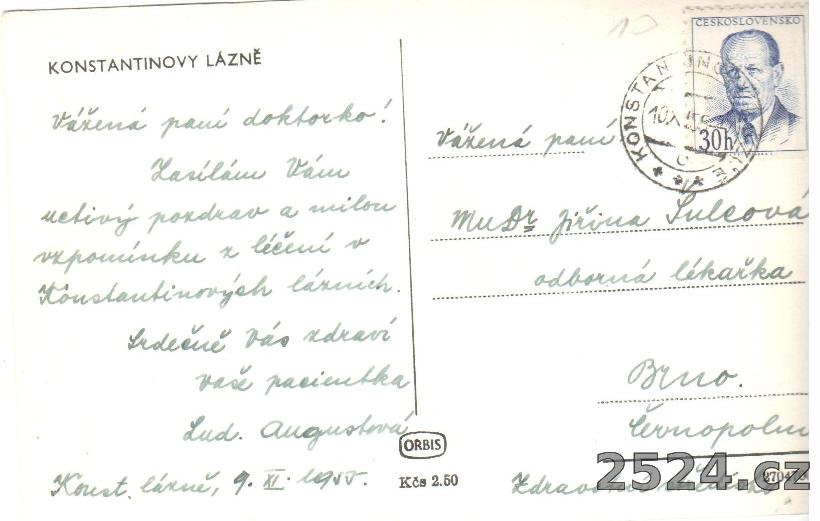 KONSTANTINOVY LÁZNĚ
Vážená paní doktorko!
Zasílám Vám
uctivý pozdrav a milou
vzpomínku z léčení v
Konstantinových lázních.
Srdečně Vás zdraví
vaše pacientka
Lud. Augustová
Konst. lázně, 9. XI. 1955.
ORBIS
Kčs 2.50
ČESKOSLOVENSKO
30h
Vážená paní
MuDr Jiřina Sulcová
odborná lékařka
Brno.
Černopolní
Zdravotní
2524.cz